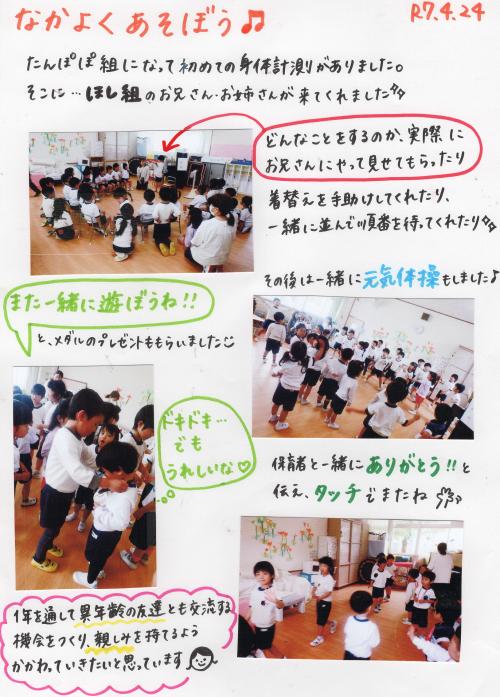 なかよくあそぼう♫
R7.4.24
たんぽぽ組になって初めての身体計測がありました。
そこに…ほし組のお兄さん・お姉さんが来てくれました♪♪
どんなことをするのか、実際に
お兄さんにやって見せてもらったり
着替えを手助けしてくれたり、
一緒に並んで順番を待ってくれたり♪♪
その後は一緒に元気体操もしました♪
また一緒に遊ぼうね!!
と、メダルのプレゼントももらいました
ドキドキ…
でも
うれしいな♡
保育者と一緒にありがとう!!と
伝え、タッチでまたね
1年を通して異年齢の友達とも交流する
機会をつくり、親しみを持てるよう
かかわっていきたいと思っています